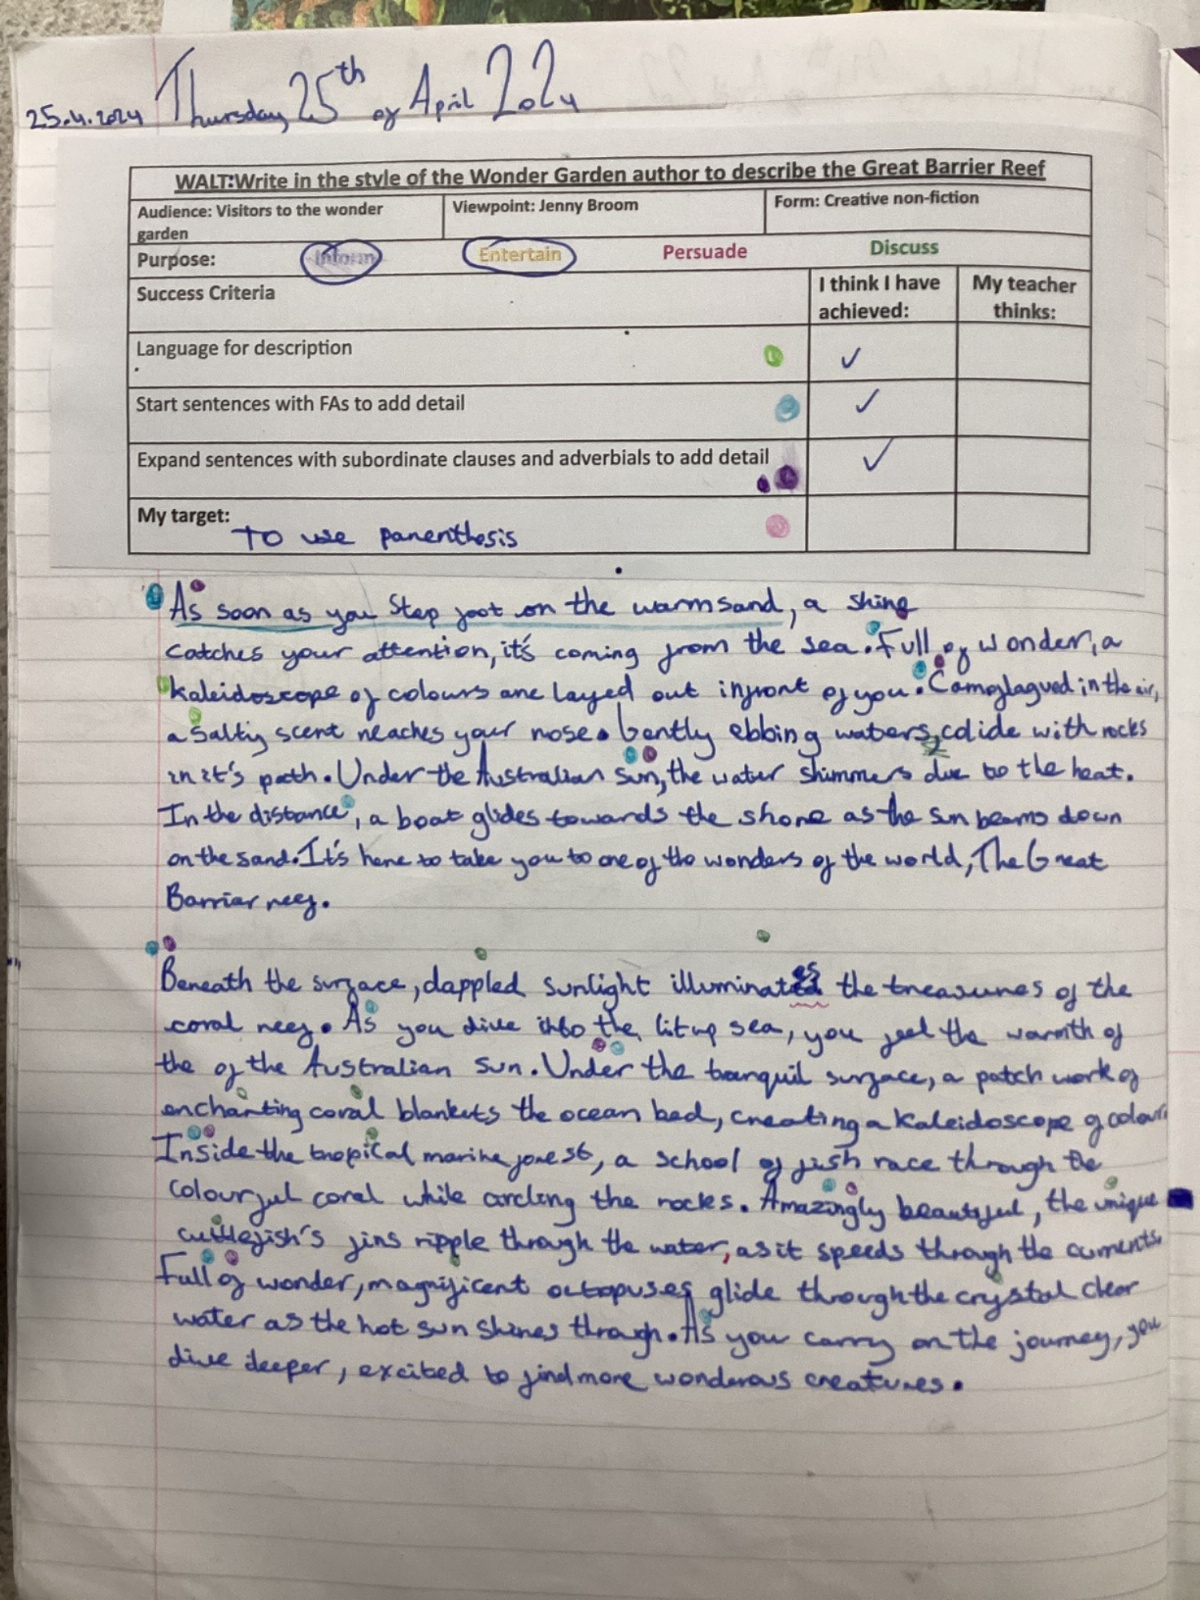 25.4.2024 Thursday 25th of April 2024
WALT:Write in the style of the Wonder Garden author to describe the Great Barrier Reef
Audience: Visitors to the wonder garden
Viewpoint: Jenny Broom
Form: Creative non-fiction
Purpose: Inform Entertain Persuade Discuss
Success Criteria
I think I have achieved:
My teacher thinks:
Language for description ✓
Start sentences with FAs to add detail ✓
Expand sentences with subordinate clauses and adverbials to add detail ✓
My target: To use parenthesis
As soon as you step foot on the warm sand, a shine
catches your attention, it's coming from the sea. Full of wonder, a
kaleidoscope of colours are layed out infront of you. Camoflagued in the air,
a salty scent reaches your nose. Gently ebbing waters, colide with rocks
in it's path. Under the Australian sun, the water shimmers due to the heat.
In the distance, a boat glides towards the shore as the sun beams down
on the sand. It's here to take you to one of the wonders of the world, The Great
Barrier reef.
Beneath the surface, dappled sunlight illuminates the treasures of the
coral reef. As you dive into the lit up sea, you feel the warmth of
the of the Australian sun. Under the tranquil surface, a patch work of
enchanting coral blankets the ocean bed, creating a kaleidoscope of colour.
Inside the tropical marine forest, a school of fish race through the
colourful coral while circling the rocks. Amazingly beautiful, the unique
cuttlefish's fins ripple through the water, as it speeds through the currents.
Full of wonder, magnificent octopuses glide through the crystal clear
water as the hot sun shines through. As you carry on the journey, you
dive deeper, excited to find more wonderous creatures.